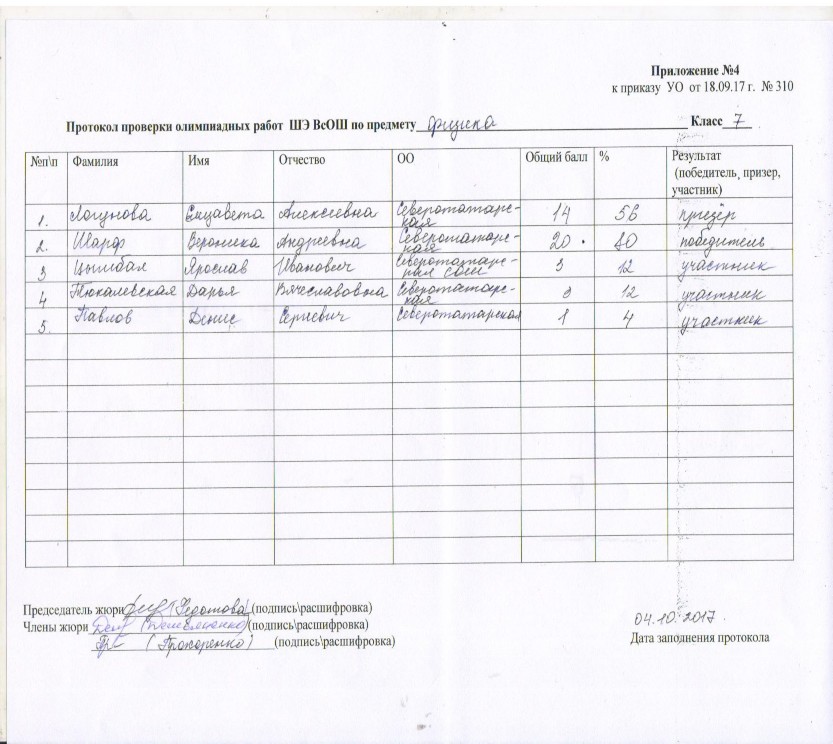 Приложение №4
к приказу УО от 18.09.17 г. № 310
Протокол проверки олимпиадных работ ШЭ ВсОШ по предмету физика Класс 7
№п\п Фамилия Имя Отчество ОО Общий балл % Результат (победитель, призер, участник)
1. Логунова Елизавета Алексеевна Северотатарс-кая 14 56 призёр
2. Шарф Вероника Андреевна Северотатарс-кая 20 80 победитель
3 Цымбал Ярослав Иванович Северотатарс-кая сош 3 12 участник
4 Тюкалевская Дарья Вячеславовна Северотатарс-кая 3 12 участник
5. Павлов Денис Сергеевич Северотатарская 1 4 участник
Председатель жюри (Федотова) (подпись\расшифровка)
Члены жюри (подпись\расшифровка)
(Прохоренко) (подпись\расшифровка)
04.10.2017.
Дата заподнения протокола